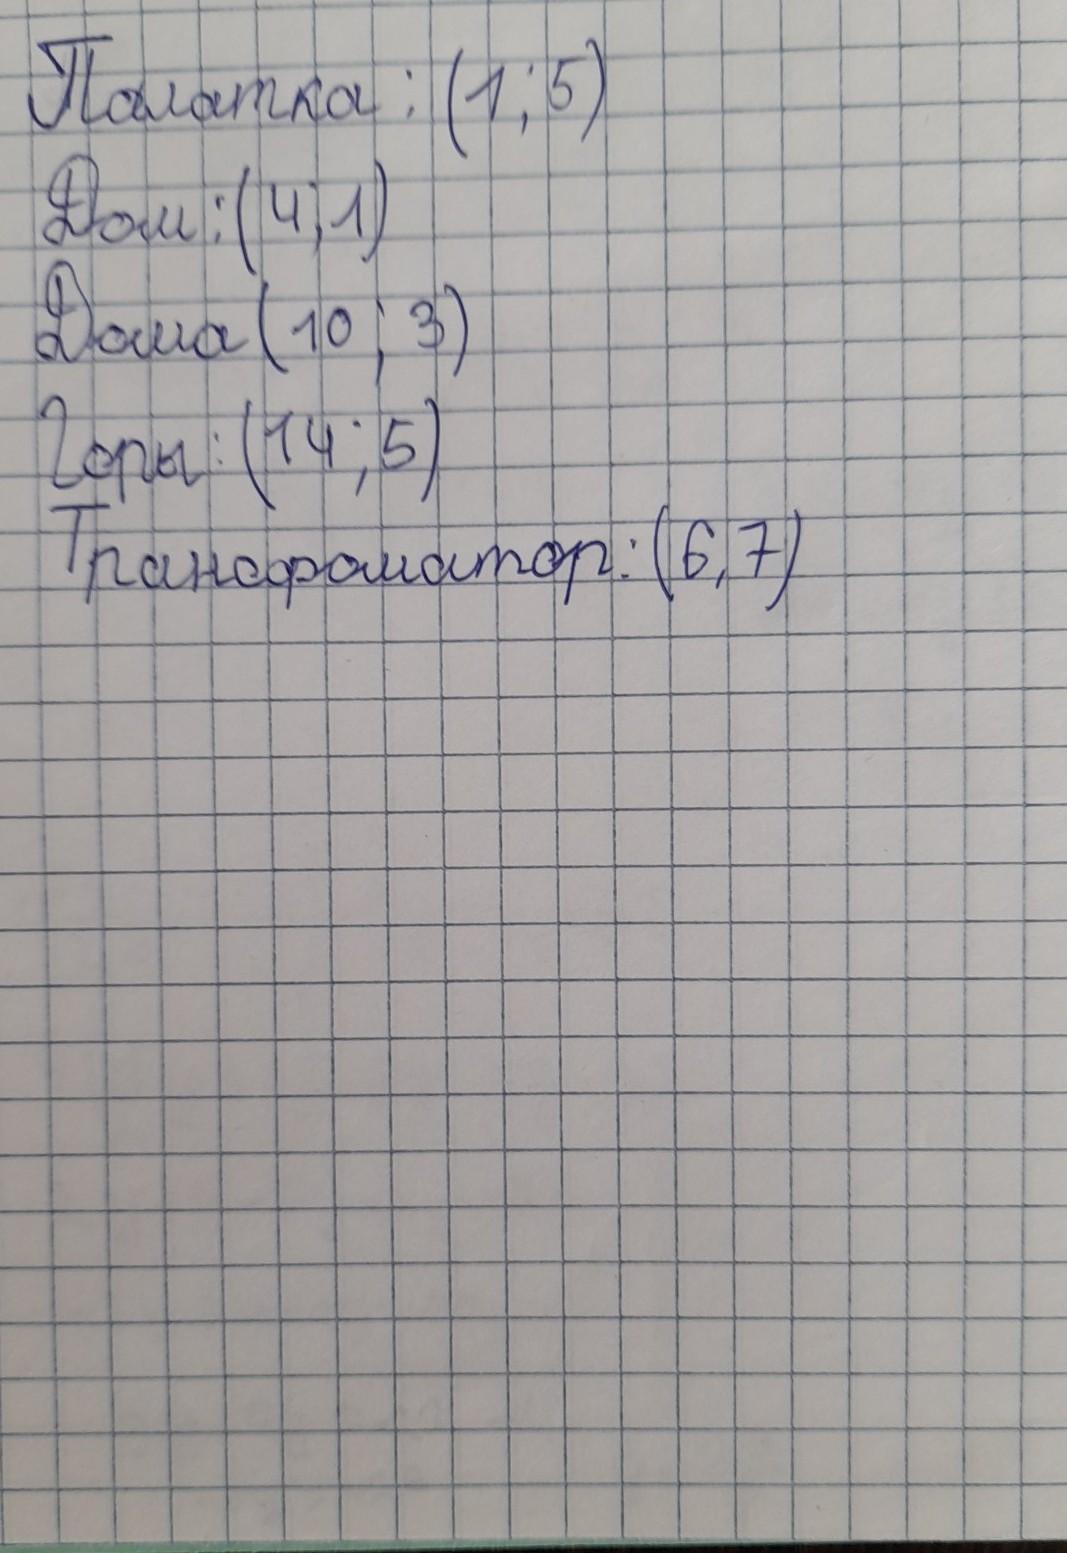 Палатка: (1; 5)
Дом: (4; 1)
Дома (10; 3)
Горы: (14; 5)
Трансфоматор: (6, 7)